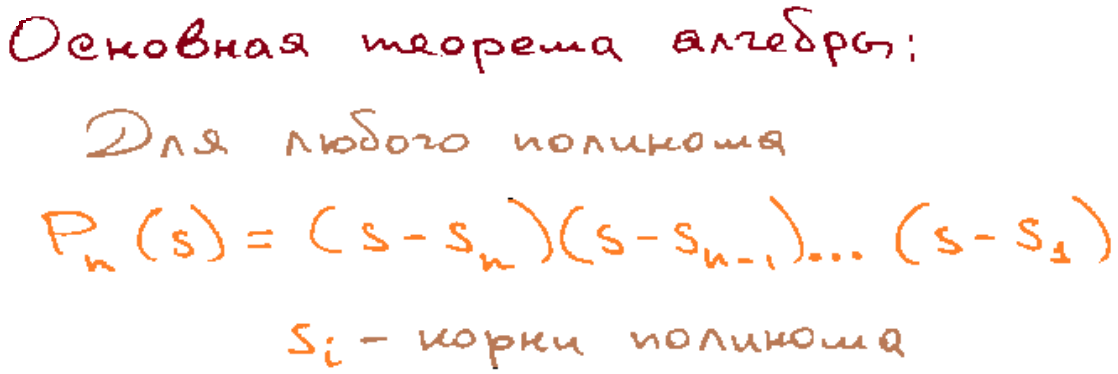 Основная теорема алгебры:
Для любого полинома
Pₙ(s) = (s - sₙ)(s - sₙ₋₁)... (s - s₁)
sᵢ - корни полинома